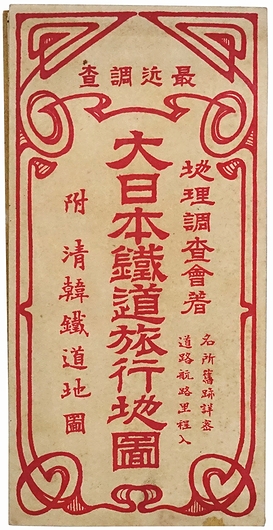 最近調査
地理調査會著
名所舊跡詳密
道路航路里程入
大日本鐵道旅行地圖
附 清韓鐵道地圖